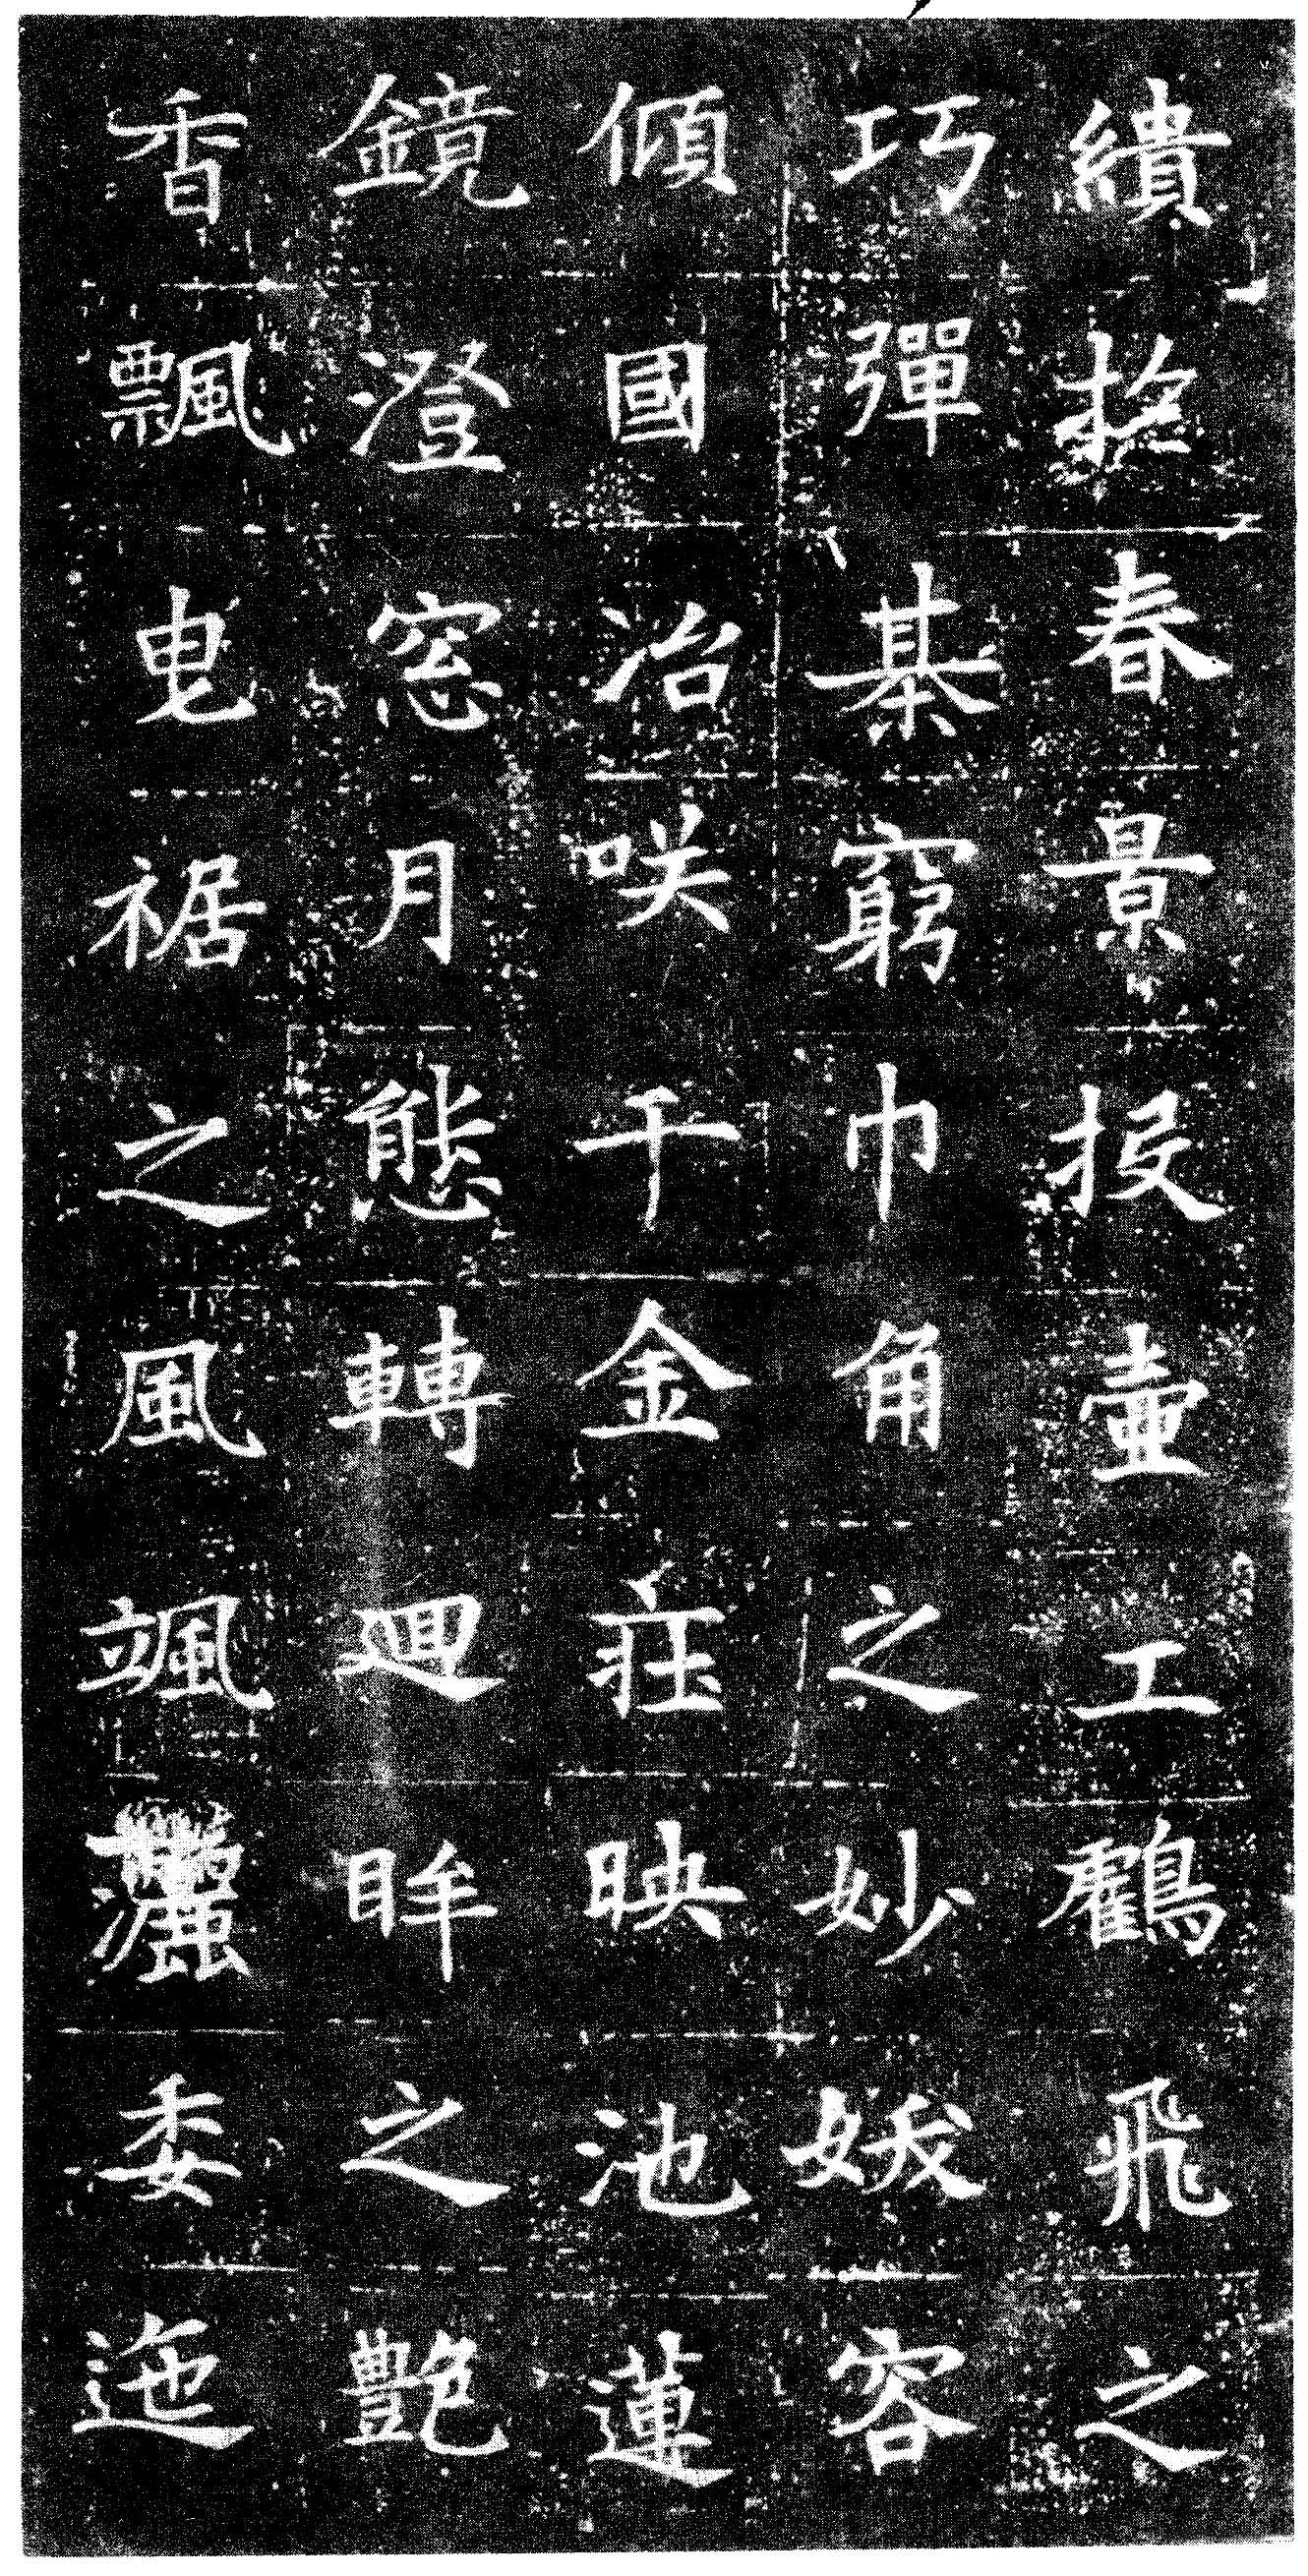 繢掞春景投壺工鸛飛之
巧彈棊窮巾角之妙妖容
傾國冶咲千金莊映池蓮
鏡澄窓月態轉迴眸之艷
香飄曳裾之風颯灑委迤